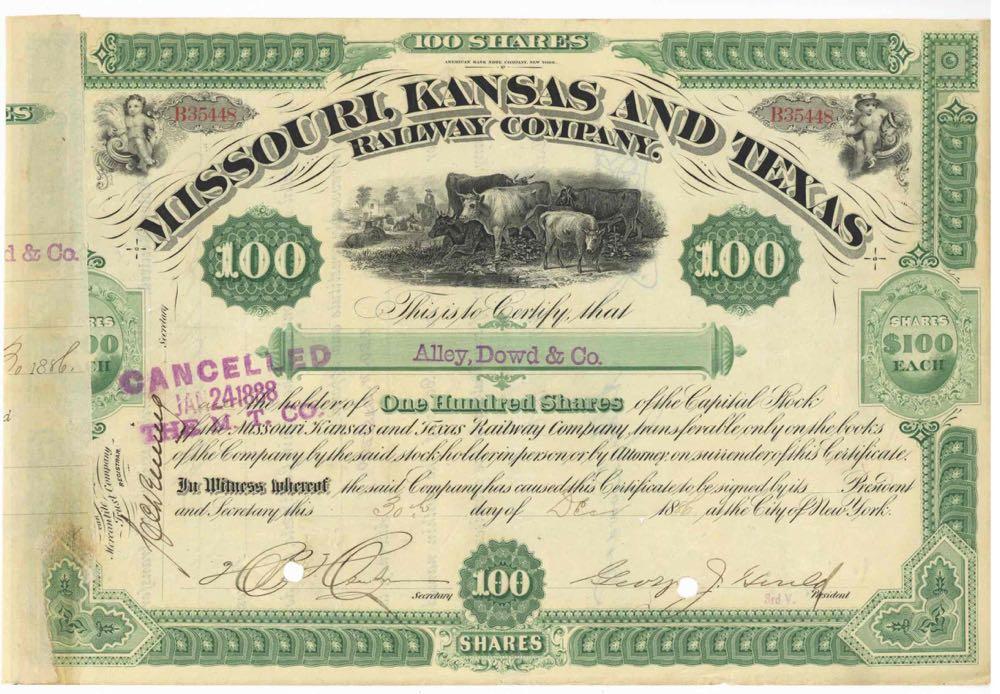 100 SHARES
AMERICAN BANK NOTE COMPANY, NEW YORK.
B35448
B35448
MISSOURI, KANSAS AND TEXAS
RAILWAY COMPANY.
100
100
This is to Certify, that
Alley, Dowd & Co.
CANCELLED
JAN 24 1888
THE M. T. CO.
holder of One Hundred Shares of the Capital Stock
Missouri Kansas and Texas Railway Company, transferable only on the books
of the Company by the said stockholder in person or by Attorney on surrender of this Certificate.
In Witness whereof the said Company has caused this Certificate to be signed by its President
and Secretary this 30th day of Dec 1886, at the City of New York.
Secretary
George J. Gould
3rd V. President
100
SHARES
SHARES
$100
EACH
Secretary
Mercantile Trust Company
REGISTRAR
ES
d & Co.
RES
00
CH
1886.
d